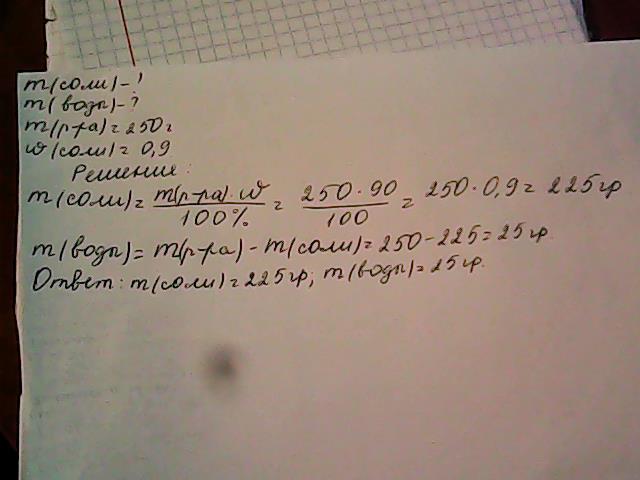 m(соли)-?
m(воды)-?
m(р-ра)=250г
w(соли)=0,9
Решение:
m(соли)= m(р-ра)·w / 100% = 250·90 / 100 = 250·0,9= 225гр
m(воды)= m(р-ра)-m(соли)=250-225=25гр.
Ответ: m(соли)=225гр; m(воды)=25гр.